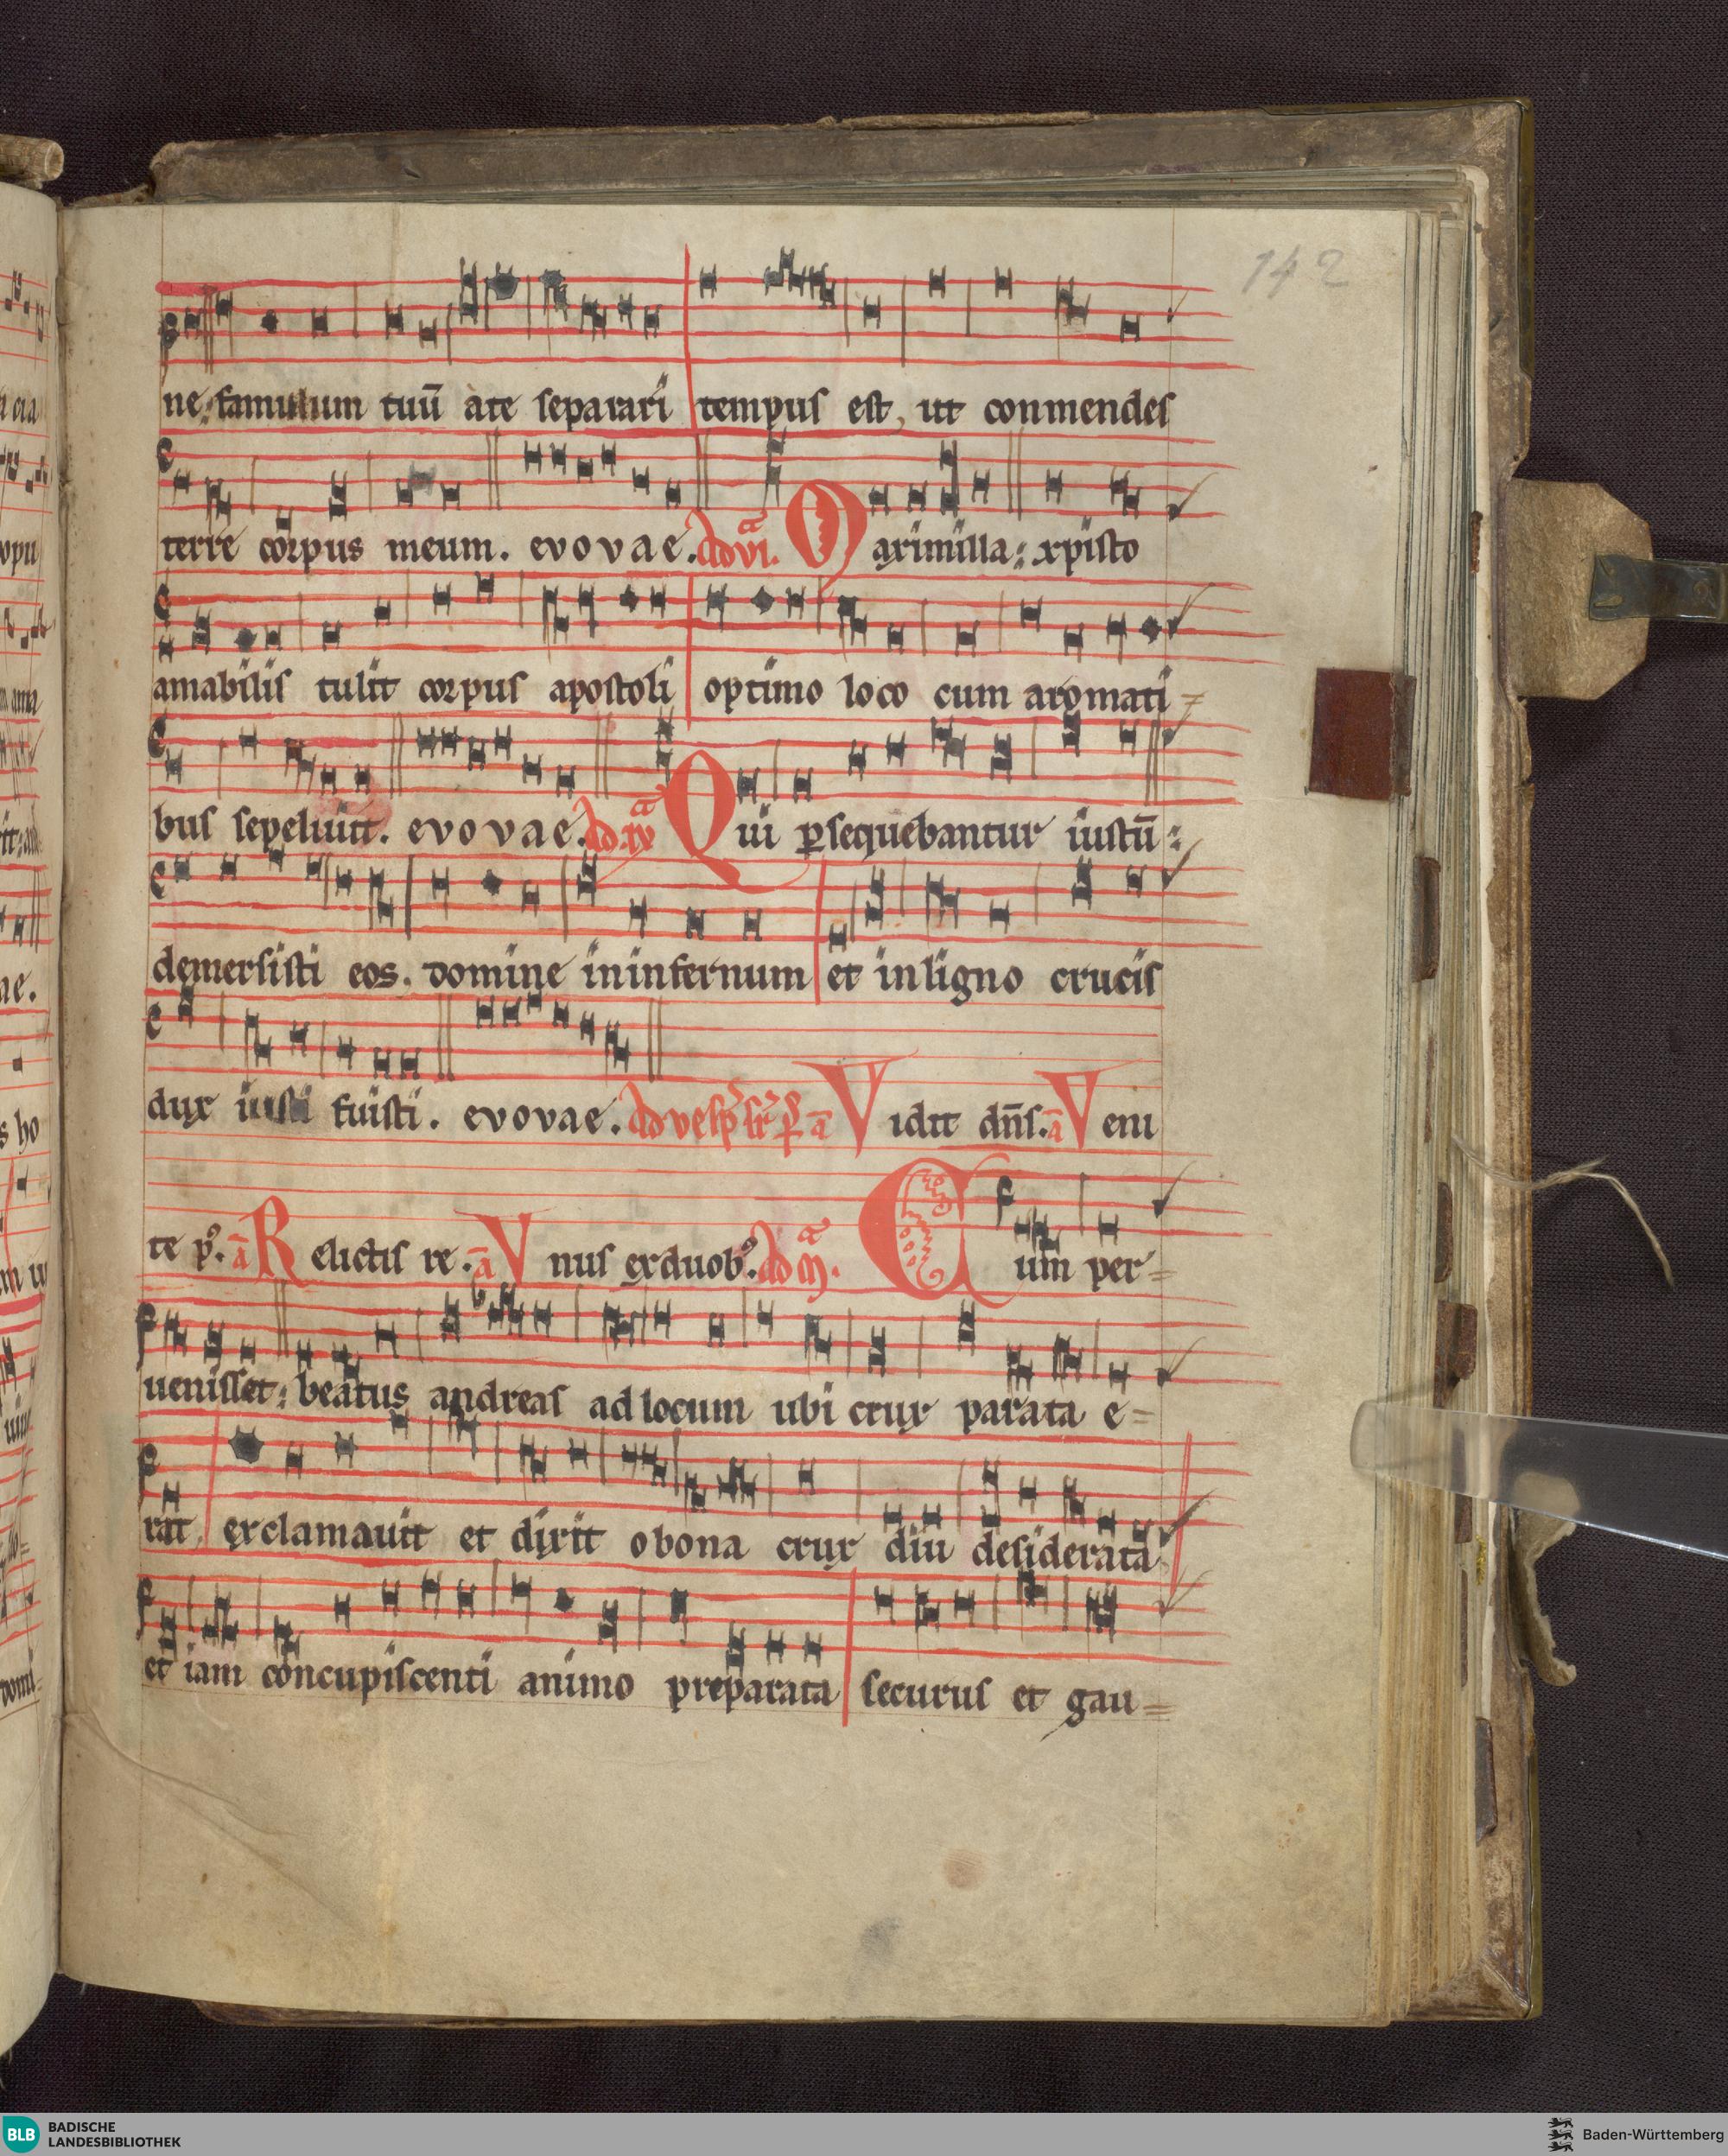 142
ne: famulum tuū a te separari tempus est, ut conmendes
terre corpus meum. evovae. ad vi. Maximilla: xpisto
amabilis tulit corpus apostoli optimo loco cum aromati=
bus sepeliuit. evovae. ad. ix Qui ꝑsequebantur iustū:
demersisti eos. domine in infernum et in ligno crucis
dux iusti fuisti. evovae. ad uesp̄ a Vidit dn̄s. a Veni
te p9. a Relictis re. a Vnus ex duob9. ad m. Cum per=
uenisset: beatus andreas ad locum ubi crux parata e=
rat exclamauit et dixit o bona crux diu desiderata
et iam concupiscenti animo preparata securus et gau=
BLB BADISCHE
LANDESBIBLIOTHEK
Baden-Württemberg